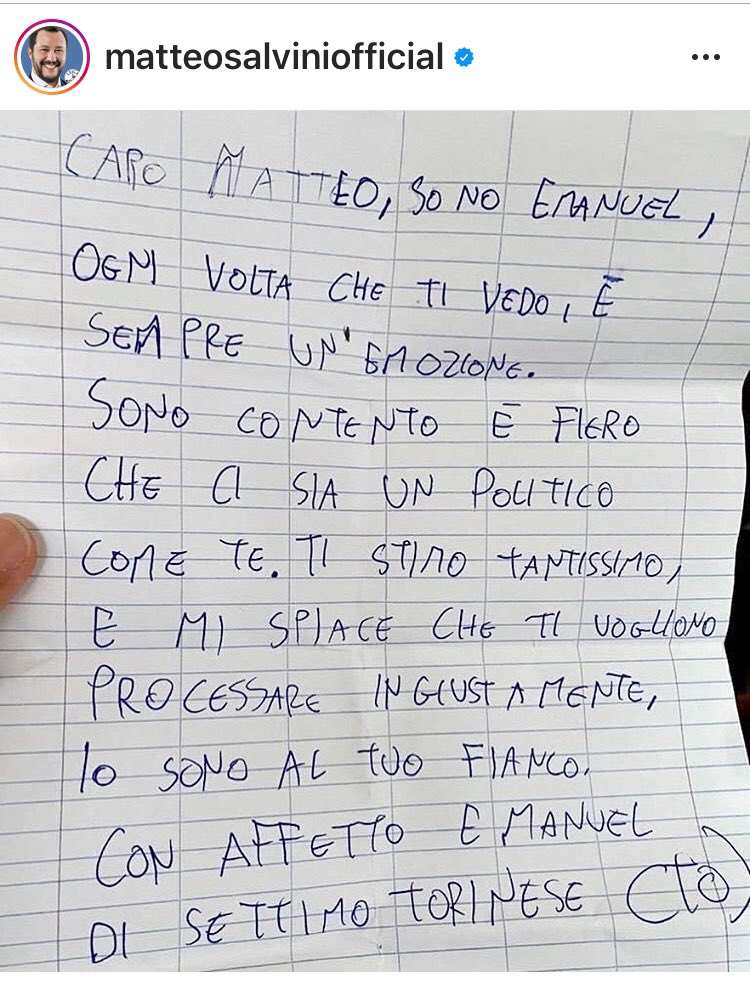 matteosalviniofficial
CARO MATTEO, SONO EMANUEL,
OGNI VOLTA CHE TI VEDO, È
SEMPRE UN' EMOZIONE.
SONO CONTENTO E FIERO
CHE CI SIA UN POLITICO
COME TE. TI STIMO TANTISSIMO,
E MI SPIACE CHE TI VOGLIONO
PROCESSARE INGIUSTAMENTE,
IO SONO AL TUO FIANCO.
CON AFFETTO EMANUEL
DI SETTIMO TORINESE (TO)